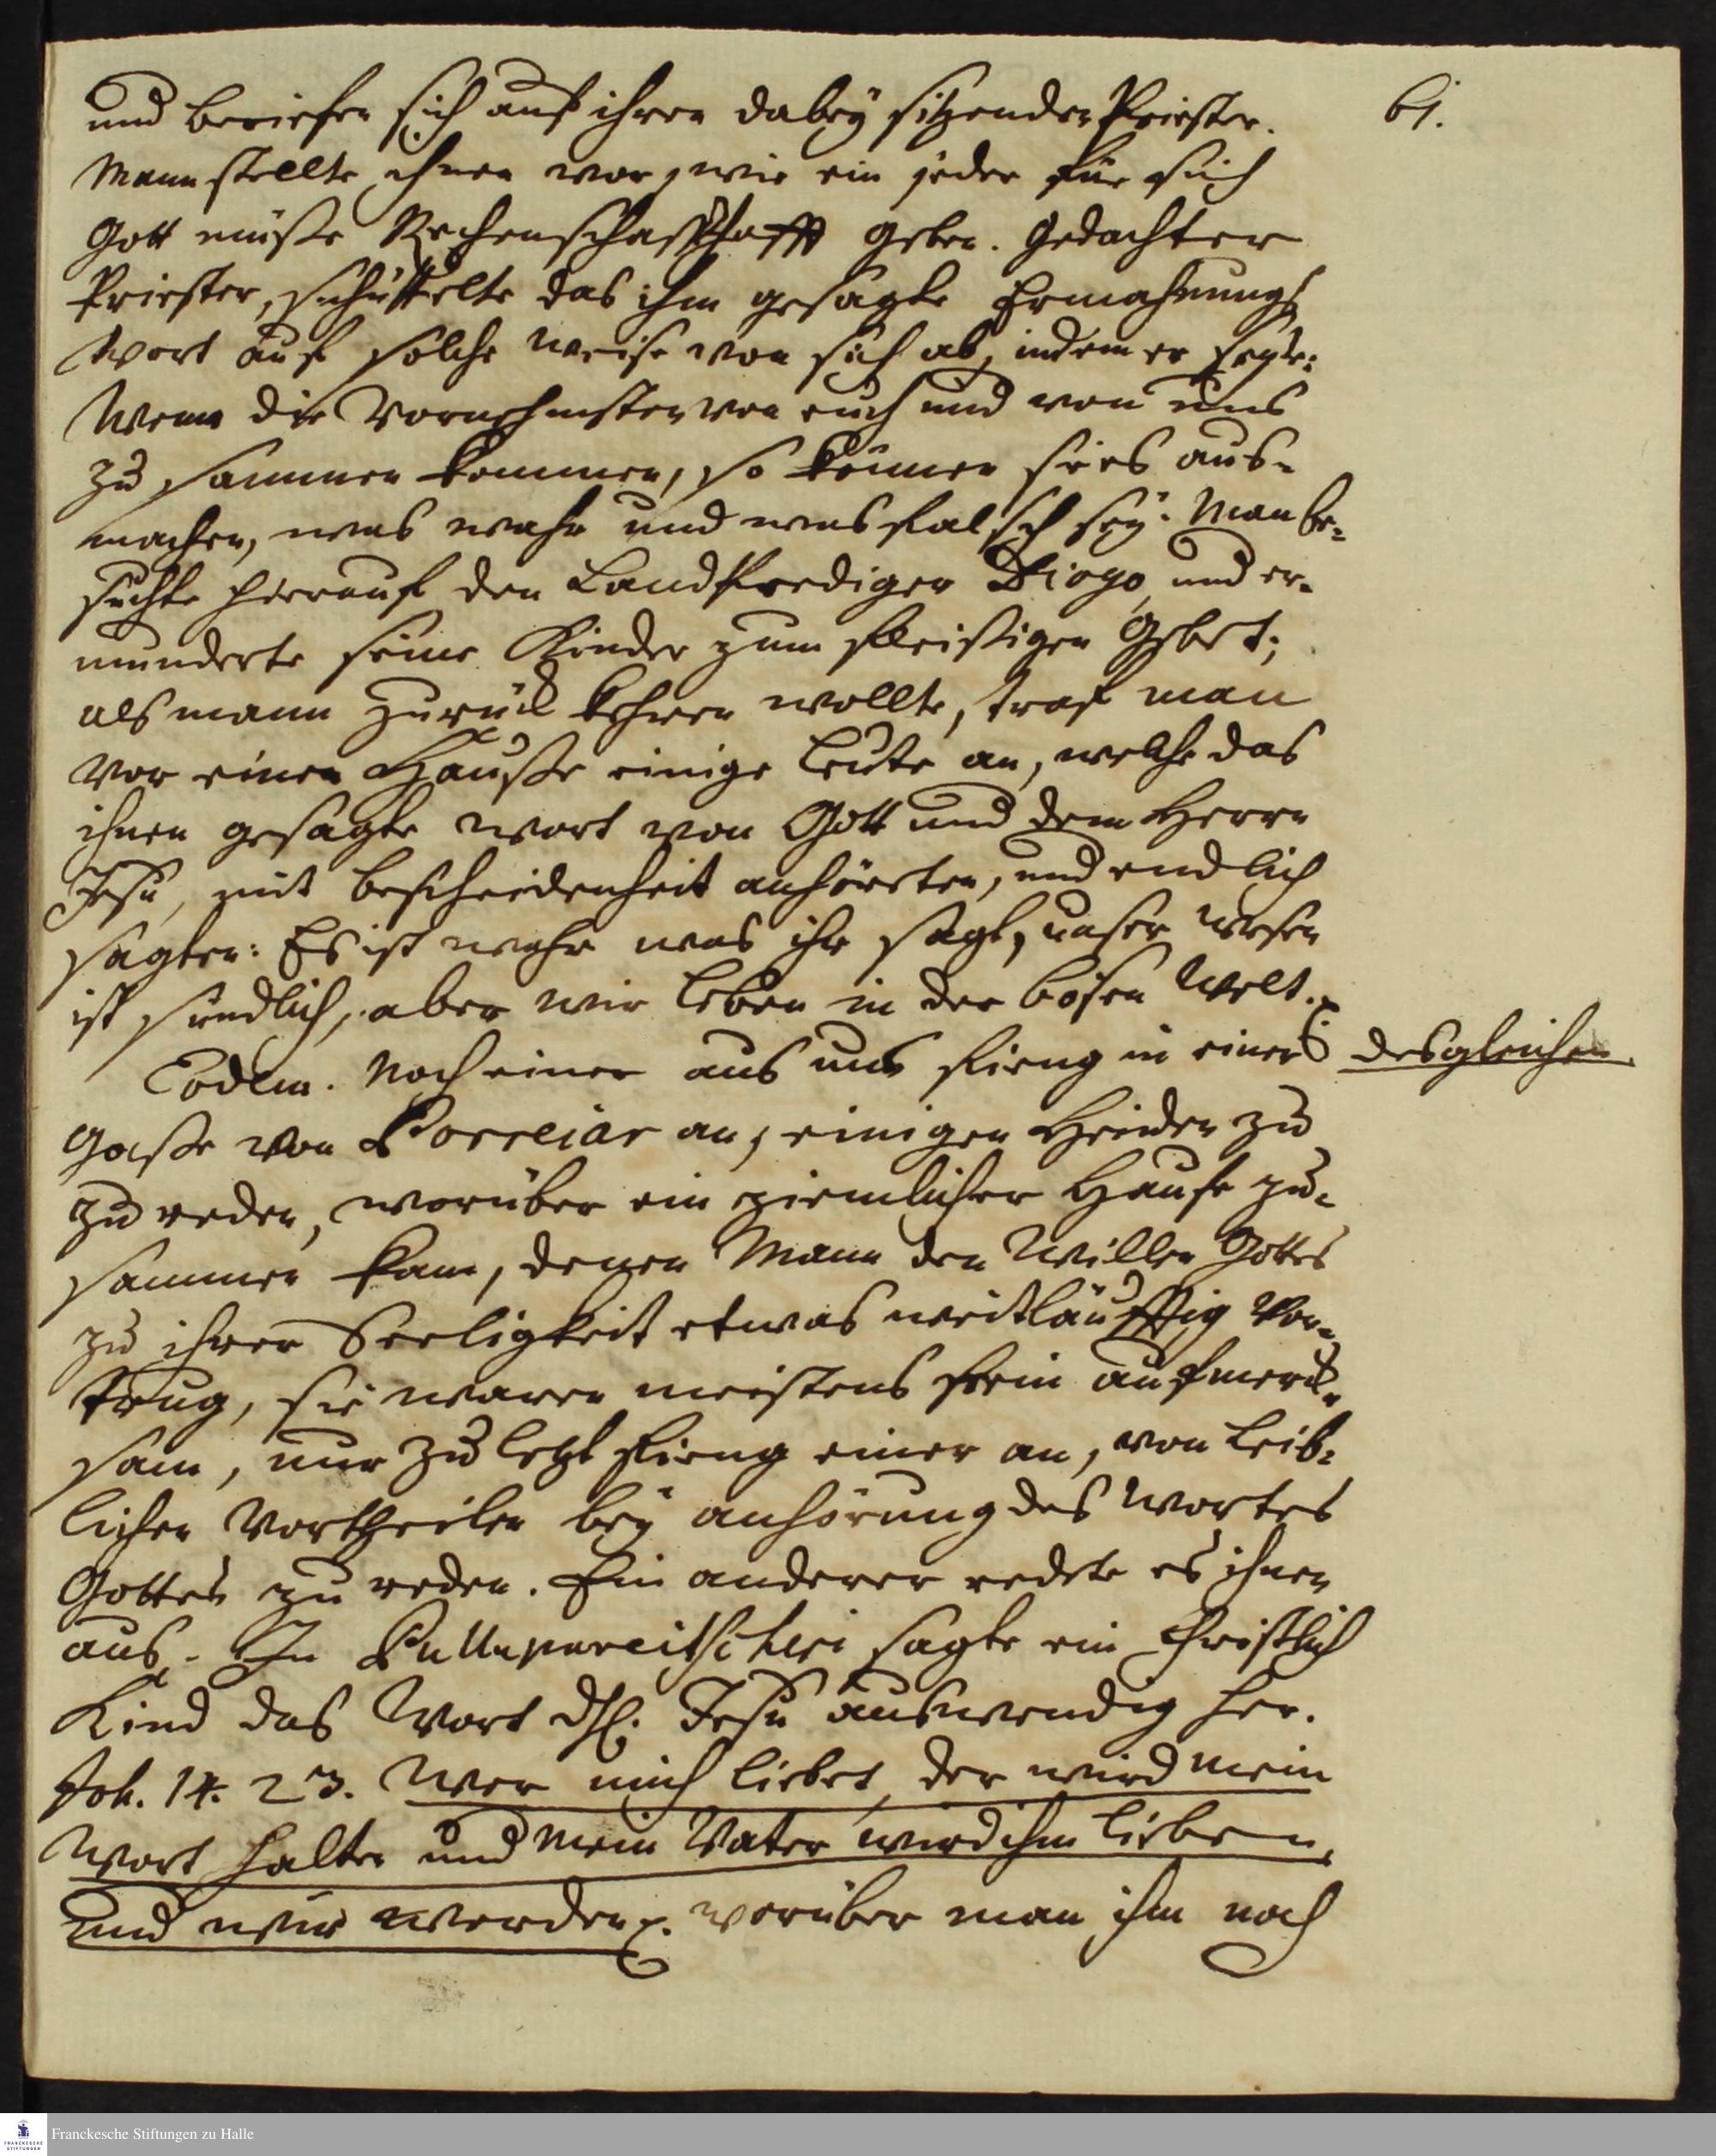 61.
und beriefen sich auf ihren dabey sitzenden Priester.
Mann stellte ihnen vor, wie ein jeder für sich
Gott müße Rechenschafft geben. Gedachter
Priester, schüttelte das ihm gesagte Ermahnungs
Wort auf solche weise von sich ab, indem er sagte:
Wenn die Vornehmsten von euch und von uns
zu sammen kommen, so können sie es aus-
machen, was wahr und was falsch sey. Man be-
suchte hierauf den Landprediger Diogo, und er-
munderte seine Kinder zum fleißigen Gebet;
als mann zurück kehren wollte, traf man
vor einen Hauße einige Leute an, welche das
ihnen gesagte wort von Gott und dem Herrn
Jesu, mit bescheidenheit anhörten, und endlich
sagten: Es ist wahr was ihr sagt, unser wesen
ist sündlich, aber wir leben in der bösen Welt.
Eodem. Noch einer aus uns fieng in einer
desgleichen.
Gaße von Porreiar an, einigen Heiden zu
zu reden, worüber ein ziemlicher Haufe zu-
sammen kam, denen Mann den Willen Gottes
zu ihrer Seeligkeit etwas weitläufftig vor-
trug, sie waren meistens fein aufmerck-
sam, nur zu letzt fieng einer an, von Leib-
lichen Vortheilen bey anhörung des Wortes
Gottes zu reden. Ein anderer redete es ihnen
aus. In Pullupareitscheri sagte ein Christlich
Kind das Wort des H. Jesu auswendig her.
Joh. 14. 23. Wer mich liebet, der wird mein
Wort halten und mein Vater wird ihn lieben,
und wir werden. worüber man ihm noch
Franckesche Stiftungen zu Halle